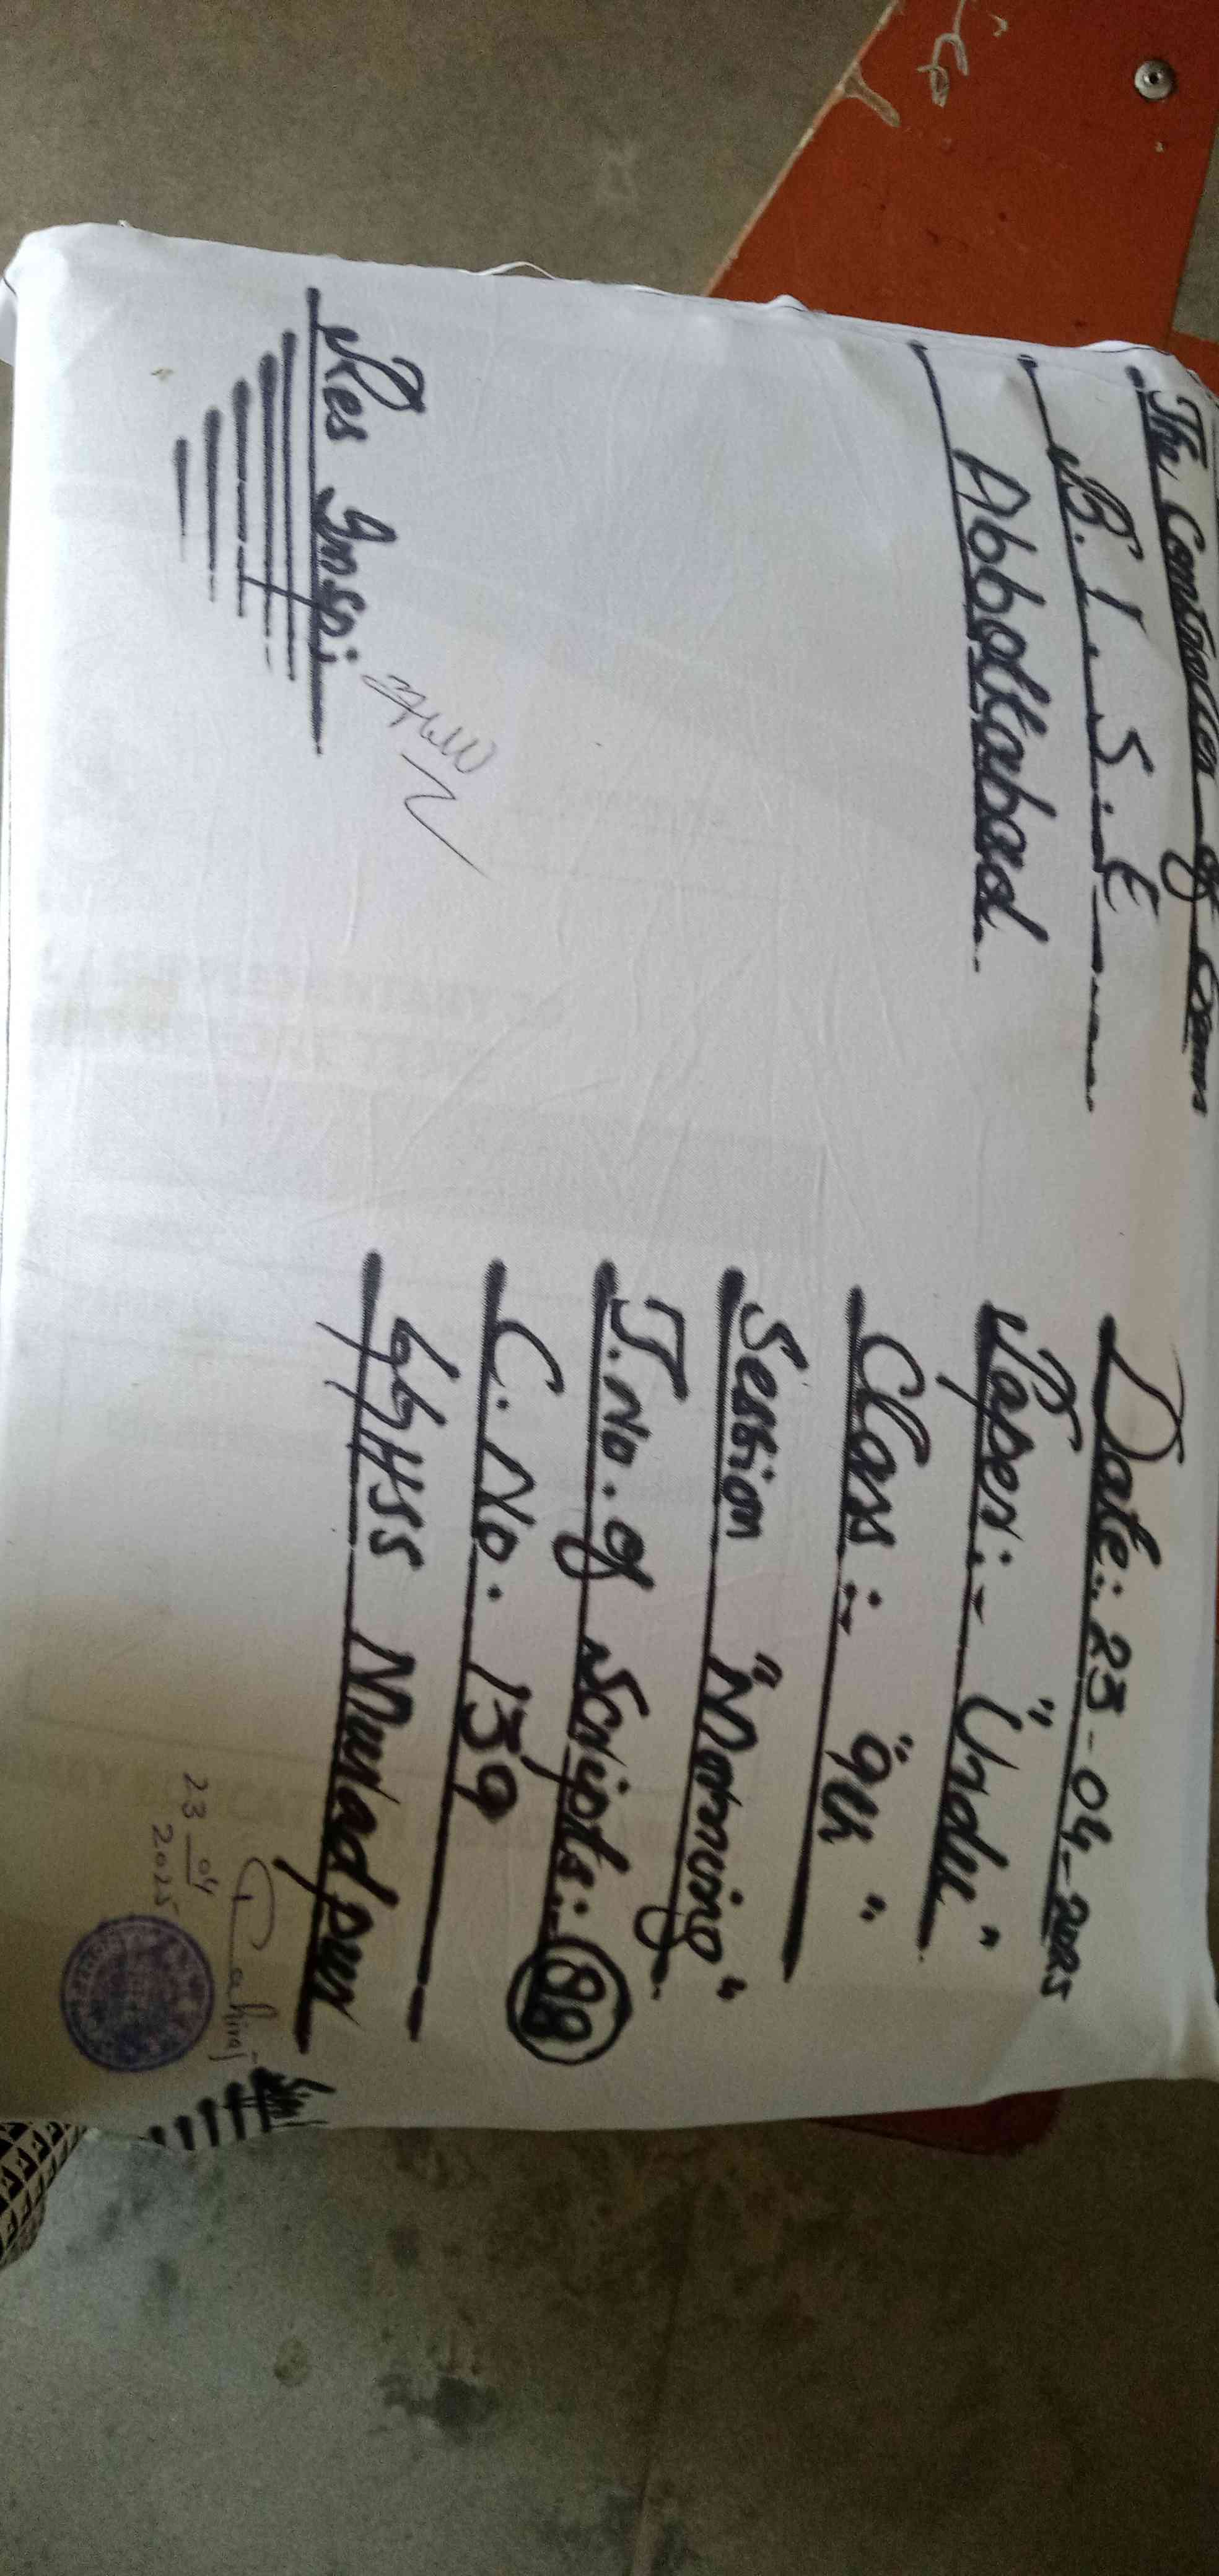 The Controller of Exams
B. I. S. E
Abbottabad.
Res Insp:
Date: 23-04-2025
Paper:- "Urdu"
Class:- "9th"
Session "Morning"
T.No. of Scripts: 88
C. No. 139
GGHSS Muradpur
23-04
2025